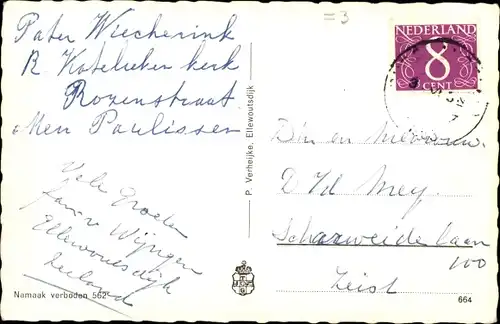 Pater Wiecherink
R Katolieken kerk
Rozenstraat
Men Paulissen
Vele Groeten
Jan v Wijngen
Ellewoutsdijk
Zeeland
Namaak verboden 562
P. Verheijke, Ellewoutsdijk
=3
NEDERLAND
8
CENT
Dhr en mevrouw
D v/d Mey.
Scharweidelaan
100
Zeist
664